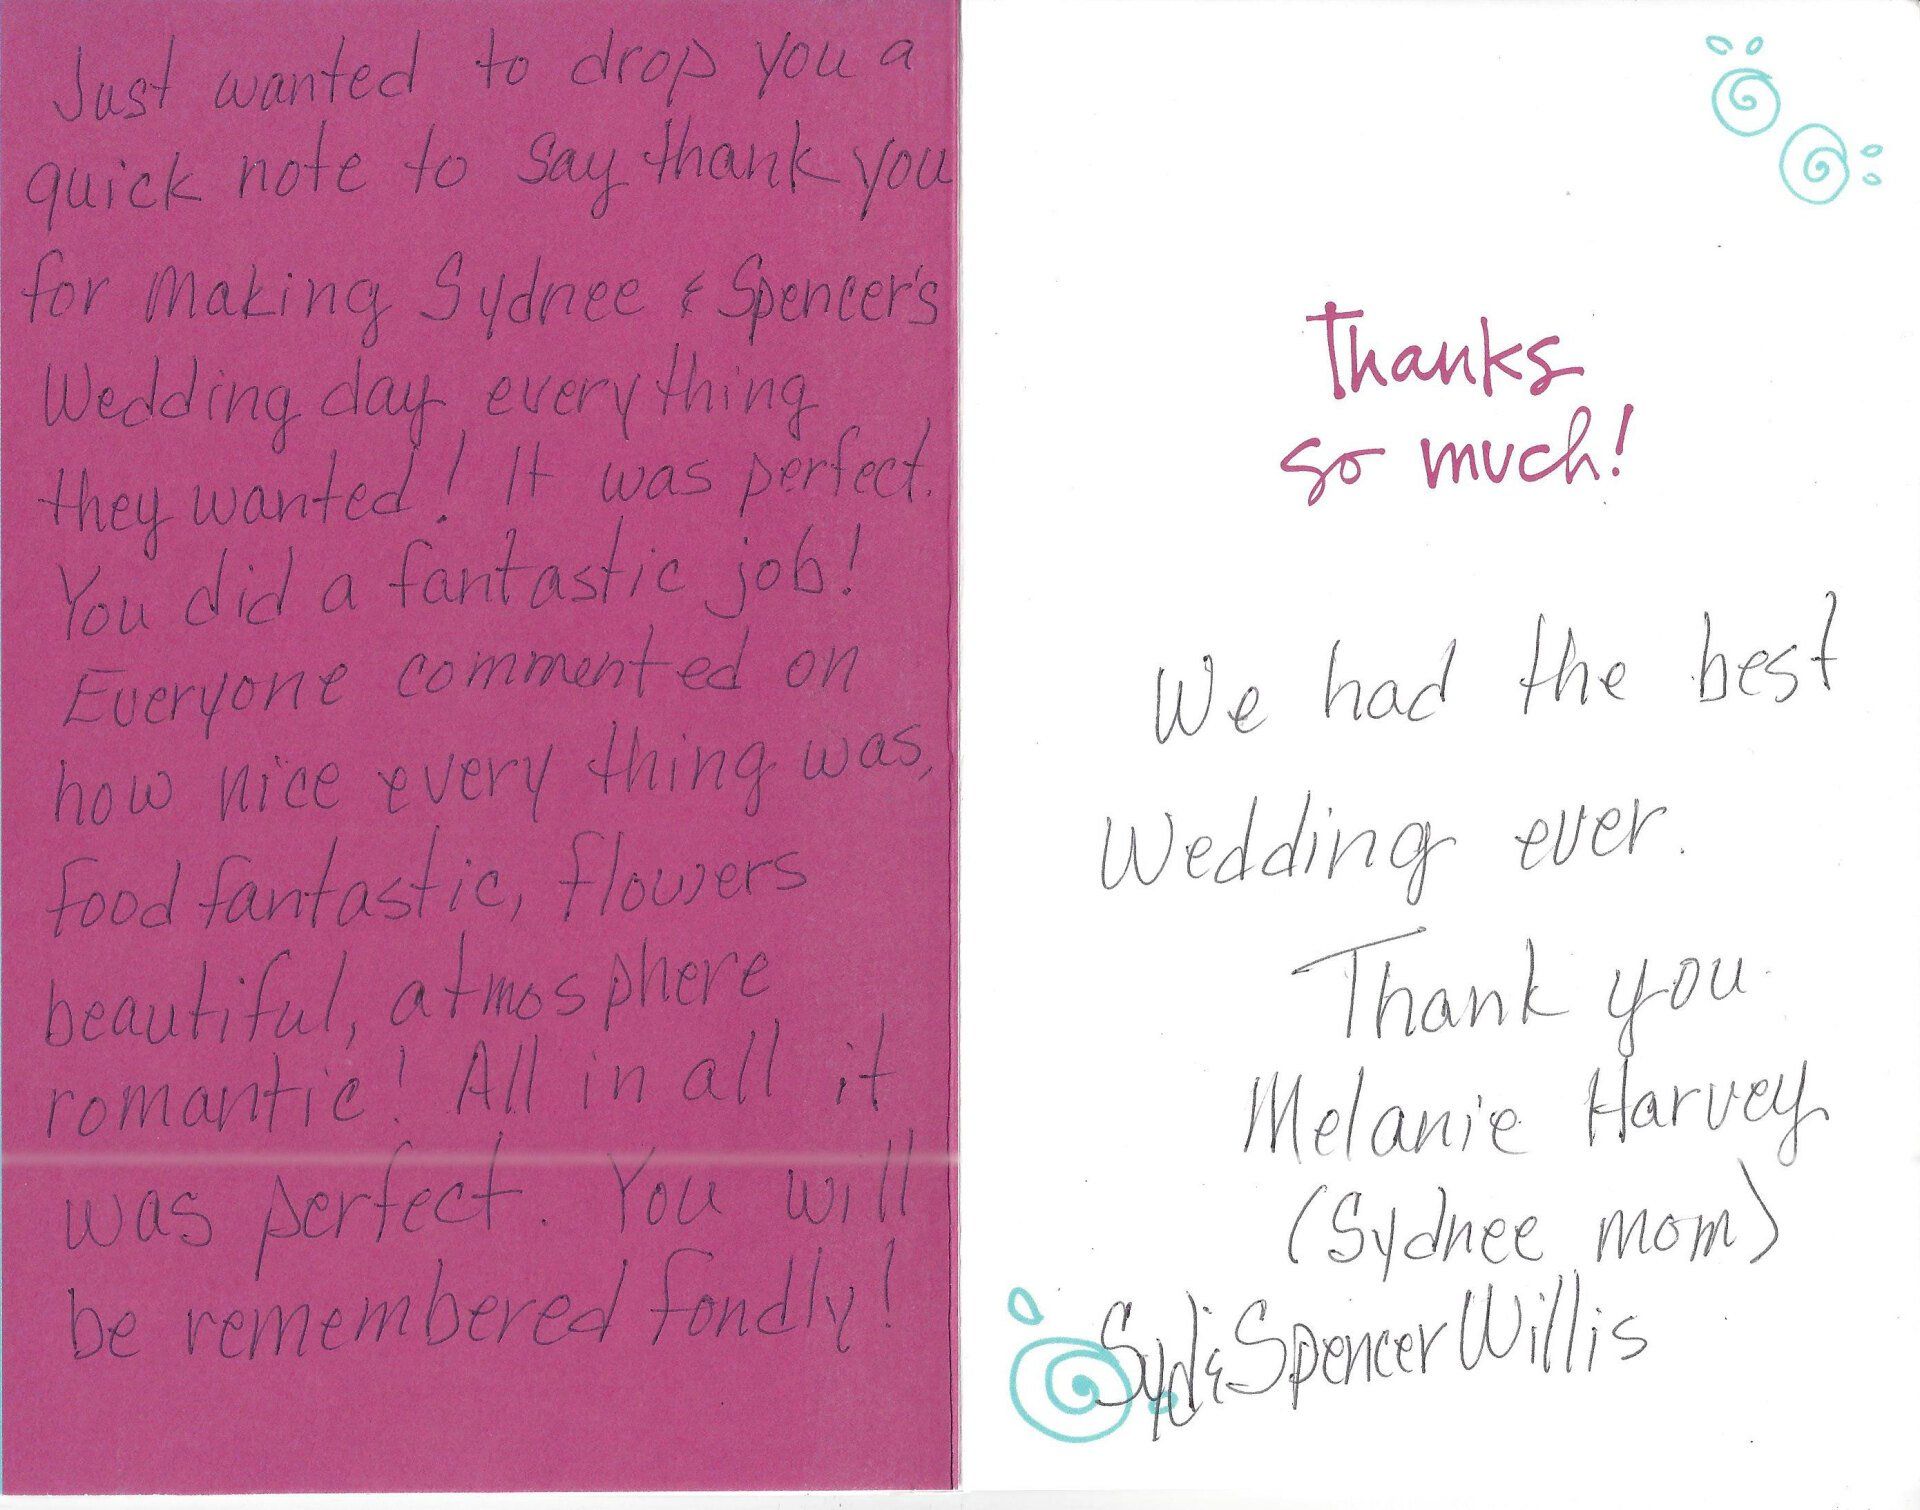 Just wanted to drop you a
quick note to say thank you
for making Sydnee & Spencer's
Wedding day everything
they wanted! It was perfect.
You did a fantastic job!
Everyone commented on
how nice every thing was,
food fantastic, flowers
beautiful, atmosphere
romantic! All in all it
was perfect. You will
be remembered fondly!
Thanks
so much!
We had the best
Wedding ever.
Thank you
Melanie Harvey
(Sydnee mom)
Syd & Spencer Willis